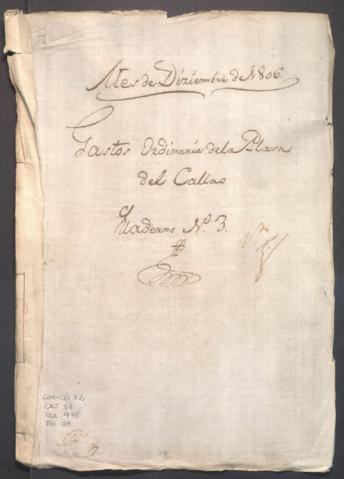 Mes de Diziembre de 1806.
Gastos Ordinarios de la Plasa
del Callao
Quaderno N.º 3.
GM-CO 32
CAJ 37
DOC 476
FOL 28